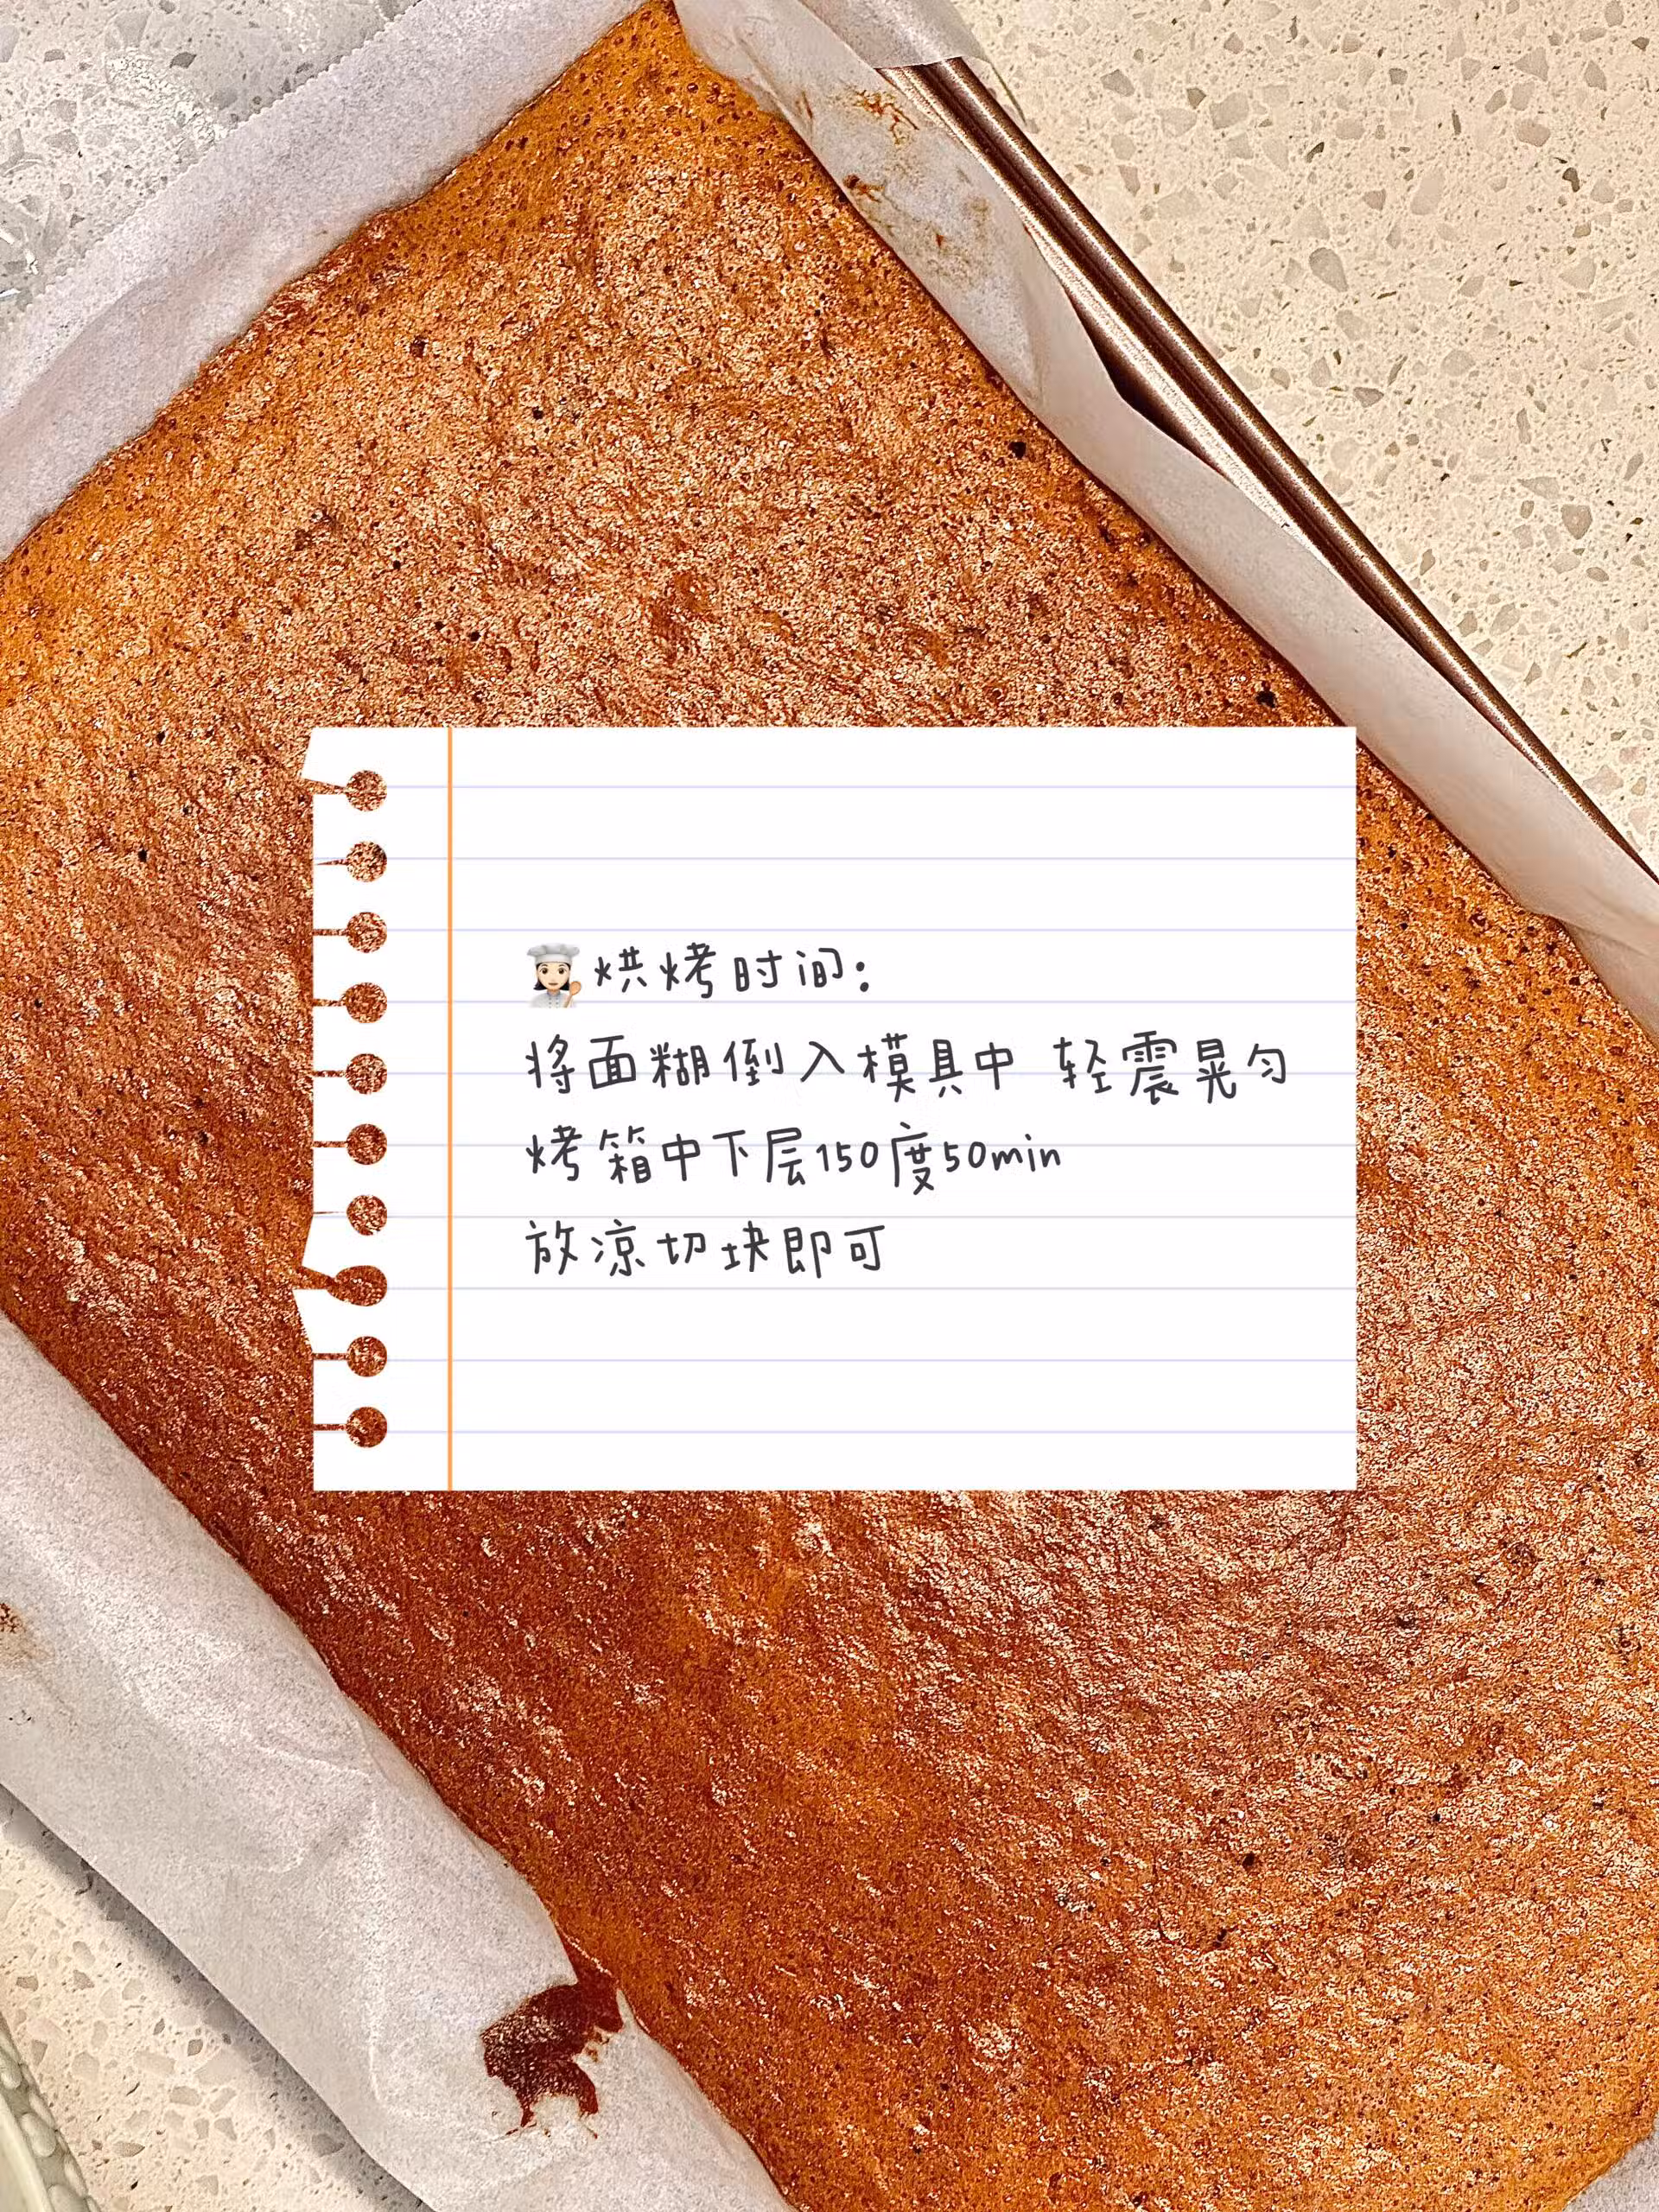 👩🏻‍🍳烘烤时间：
将面糊倒入模具中 轻震晃匀
烤箱中下层150度50min
放凉切块即可